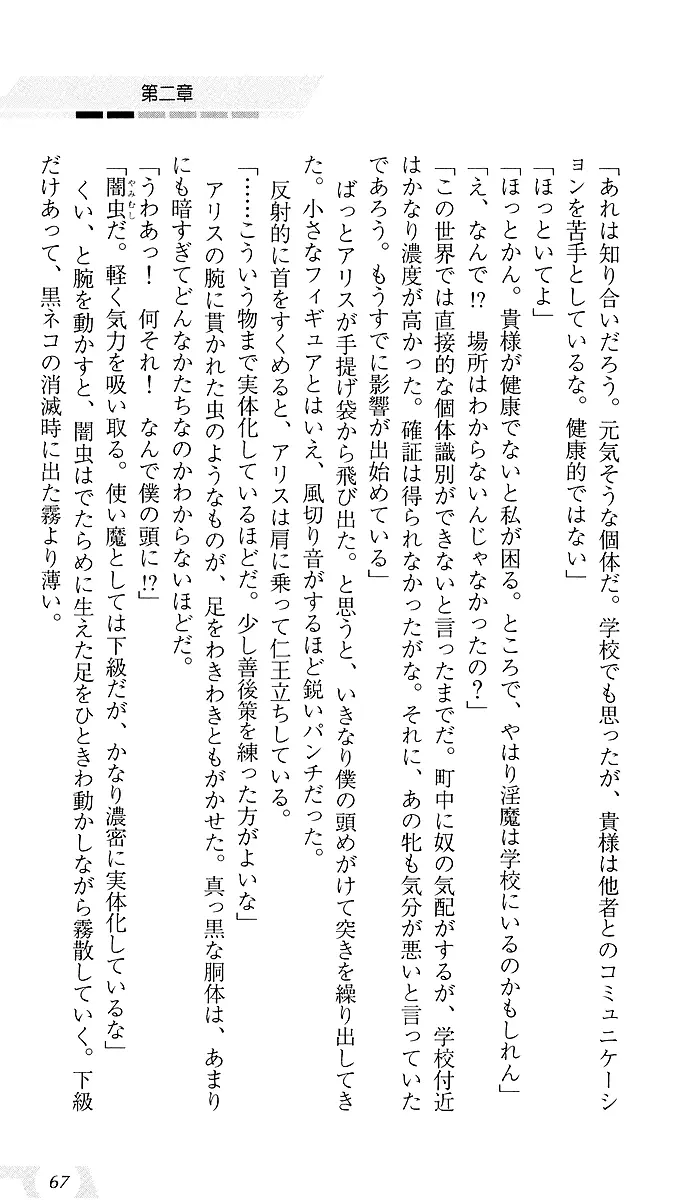 第二章
「あれは知り合いだろう。元気そうな個体だ。学校でも思ったが、貴様は他者とのコミュニケーシ
ョンを苦手としているな。健康的ではない」
「ほっといてよ」
「ほっとかん。貴様が健康でないと私が困る。ところで、やはり淫魔は学校にいるのかもしれん」
「え、なんで!?　場所はわからないんじゃなかったの？」
「この世界では直接的な個体識別ができないと言ったまでだ。町中に奴の気配がするが、学校付近
はかなり濃度が高かった。確証は得られなかったがな。それに、あの牝も気分が悪いと言っていた
であろう。もうすでに影響が出始めている」
　ばっとアリスが手提げ袋から飛び出た。と思うと、いきなり僕の頭めがけて突きを繰り出してき
た。小さなフィギュアとはいえ、風切り音がするほど鋭いパンチだった。
　反射的に首をすくめると、アリスは肩に乗って仁王立ちしている。
「……こういう物まで実体化しているほどだ。少し善後策を練った方がよいな」
　アリスの腕に貫かれた虫のようなものが、足をわきわきともがかせた。真っ黒な胴体は、あまり
にも暗すぎてどんなかたちなのかわからないほどだ。
「うわあっ！　何それ！　なんで僕の頭に!?」
「闇虫やみむしだ。軽く気力を吸い取る。使い魔としては下級だが、かなり濃密に実体化しているな」
　くい、と腕を動かすと、闇虫はでたらめに生えた足をひときわ動かしながら霧散していく。下級
だけあって、黒ネコの消滅時に出た霧より薄い。
67